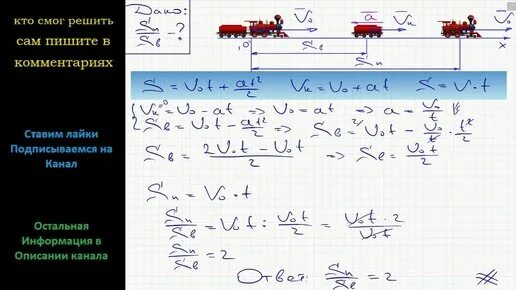 кто смог решить
сам пишите в
комментариях
Ставим лайки
Подписываемся на
Канал
Остальная
Информация в
Описании канала
Дано:
Sп/Sв - ?
V̄₀ a V̄к V̄₀
0 Sв Sп x
S = V₀t + at²/2 Vк = V₀ + at S = V·t
{ Vк = V₀ - at => V₀ = at => a = V₀/t
Sв = V₀t - at²/2 => Sв = V₀t - V₀/t · t²/2
Sв = 2V₀t - V₀t/2 => Sв = V₀t/2
Sп = V₀·t
Sп/Sв = V₀t : V₀t/2 = V₀t·2/V₀t
Sп/Sв = 2
Ответ: Sп/Sв = 2